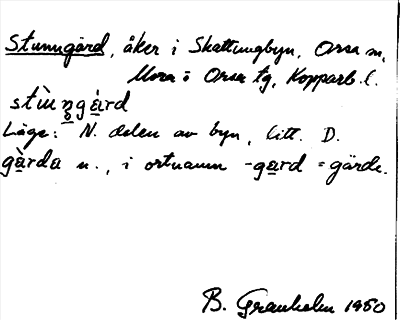 Stunngård, åker i Skattungbyn, Orsa sn,
Mora o Orsa tg, Kopparb. l.
stùngàrd
Läge: N. delen av byn, litt. D.
gàrda n., i ortnamn -gard = gärde.
B. Granholm 1980